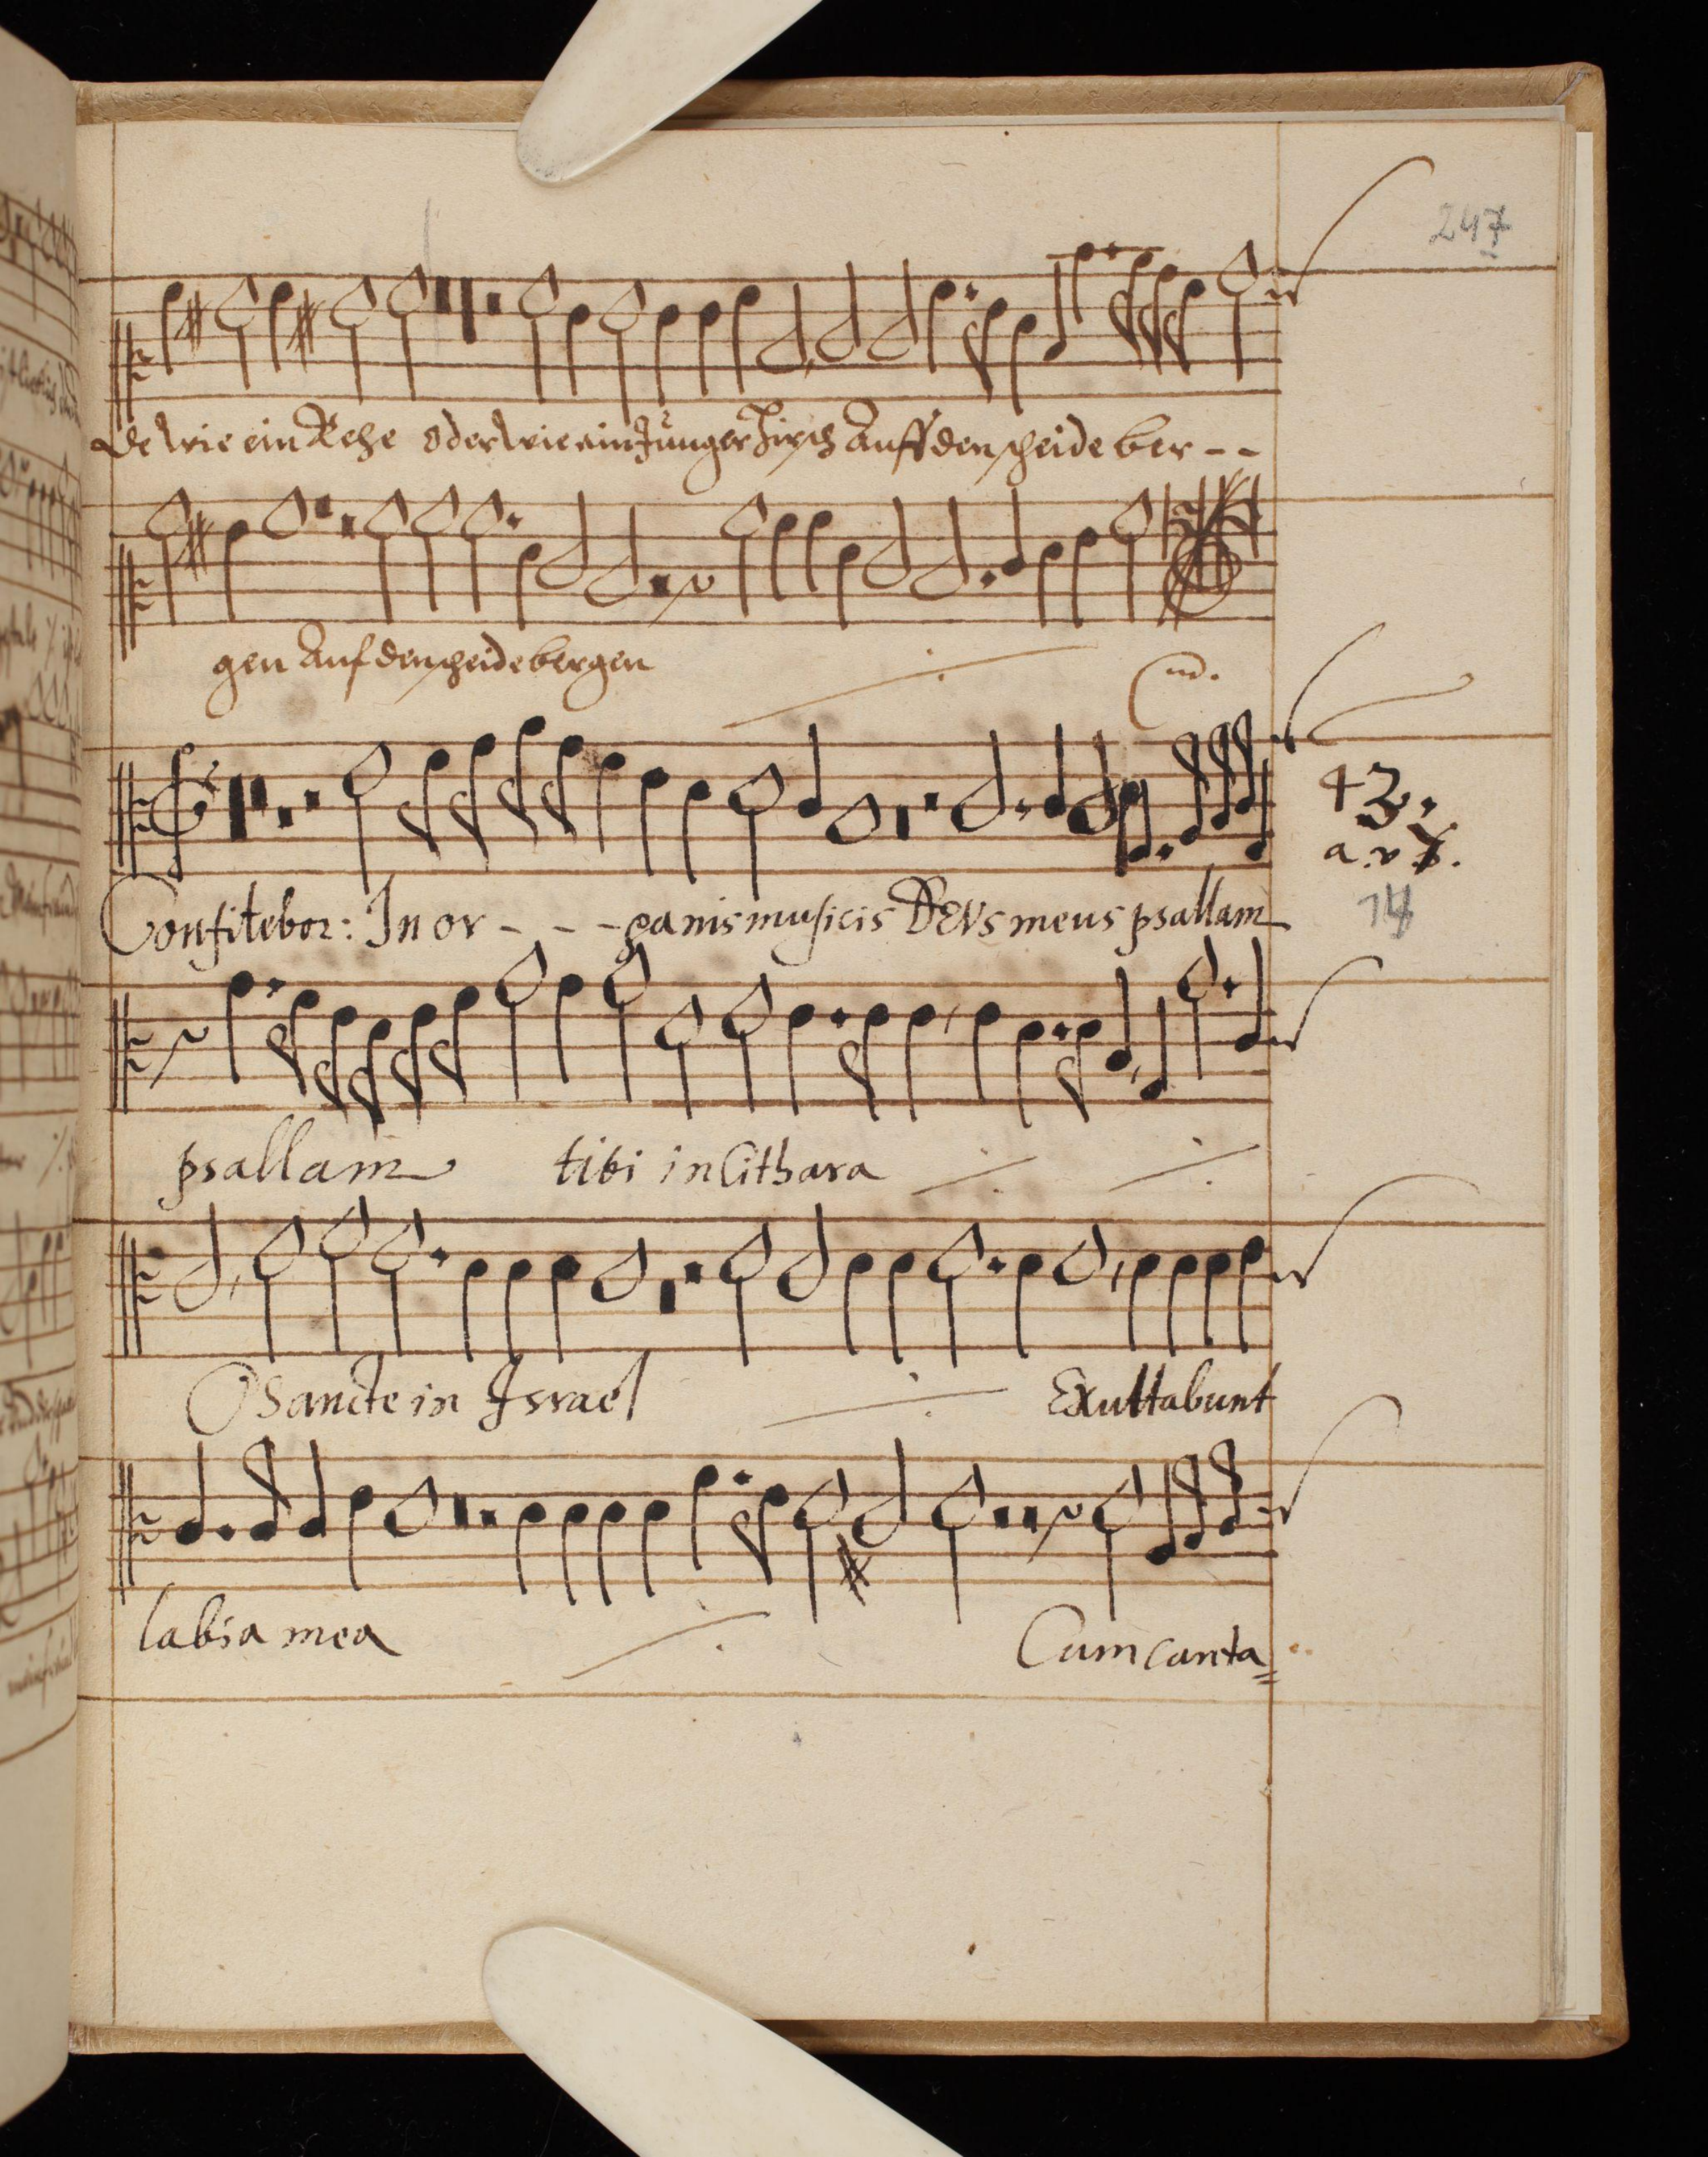 247
de wie ein Rehe oder wie ein Junger Hirsch Auff den scheide ber - -
gen Auf den scheidebergen
43.
a. v. 8.
14
Confitebor: In or - - - ganis musicis DEVS meus psallam
psallam tibi in Cithara
O Sancte in Israel Exultabunt
labia mea Cum canta=